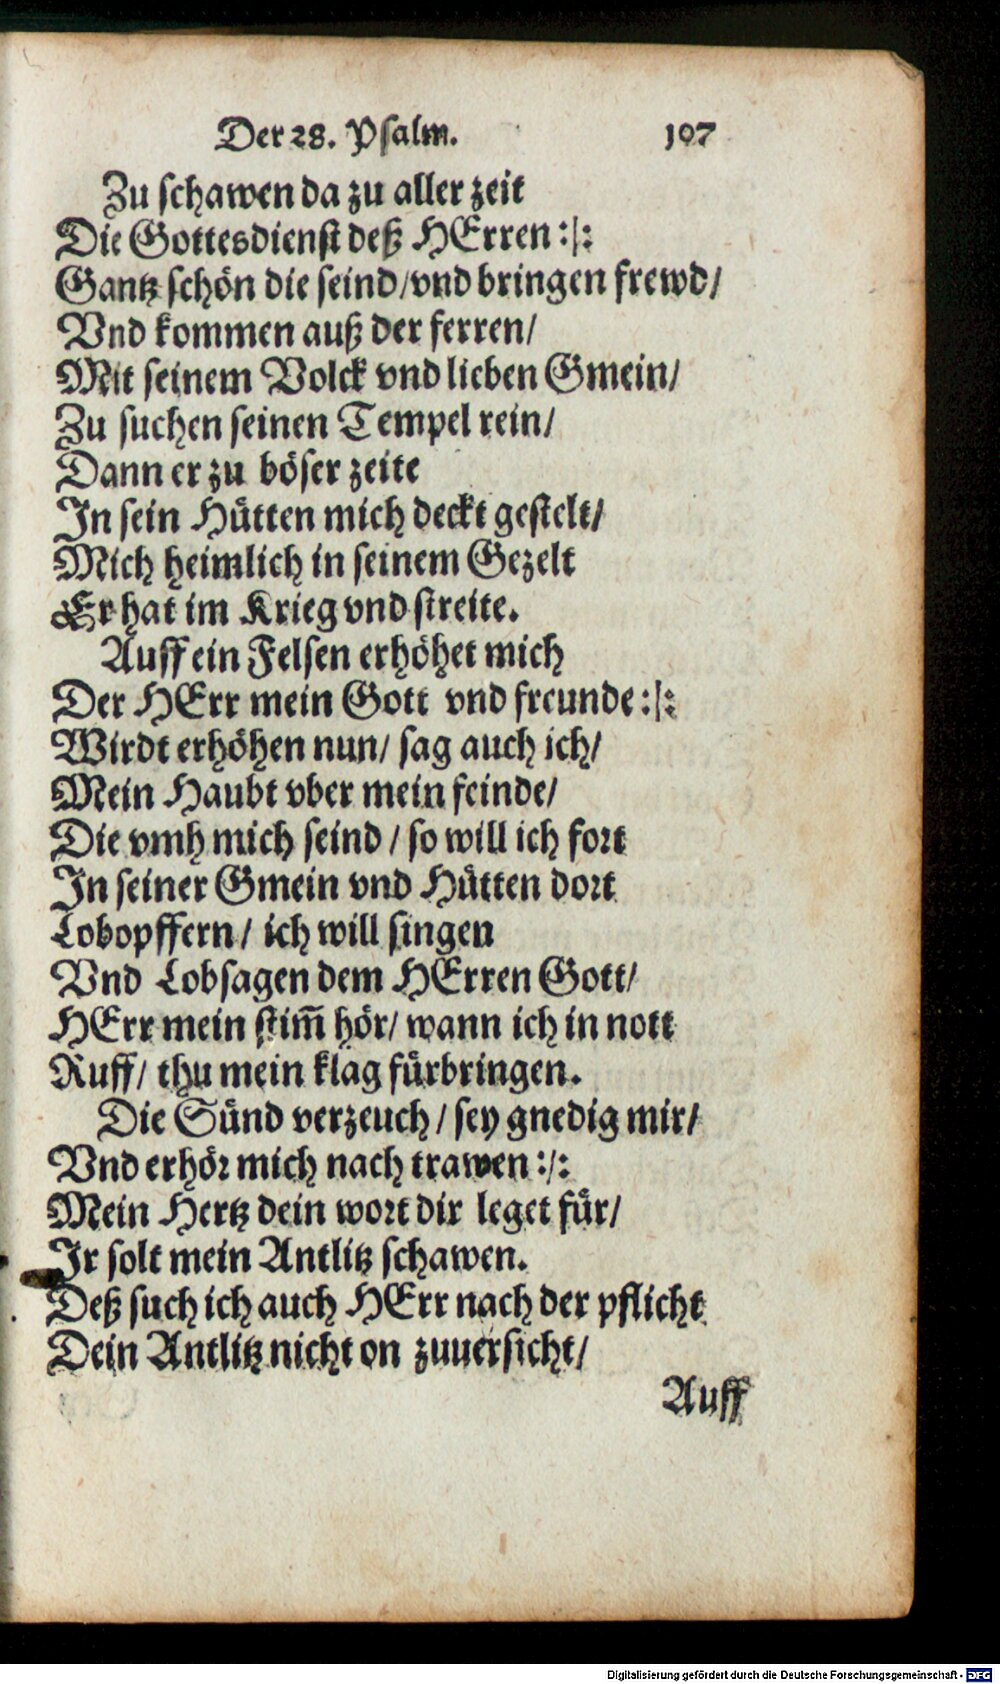 Der 28. Psalm. 107
Zu schawen da zu aller zeit
Die Gottesdienst deß HErren :/:
Gantz schön die seind/vnd bringen frewd/
Vnd kommen auß der ferren/
Mit seinem Volck vnd lieben Gmein/
Zu suchen seinen Tempel rein/
Dann er zu böser zeite
In sein Hütten mich deckt gestelt/
Mich heimlich in seinem Gezelt
Er hat im Krieg vnd streite.
Auff ein Felsen erhöhet mich
Der HErr mein Gott vnd freunde :/:
Wirdt erhöhen nun/ sag auch ich/
Mein Haubt vber mein feinde/
Die vmh mich seind / so will ich fort
In seiner Gmein vnd Hütten dort
Lobopffern/ ich will singen
Vnd Lobsagen dem HErren Gott/
HErr mein stim̃ hör/ wann ich in nott
Ruff/ thu mein klag fürbringen.
Die Sünd verzeuch / sey gnedig mir/
Vnd erhör mich nach trawen :/:
Mein Hertz dein wort dir leget für/
Ir solt mein Antlitz schawen.
Deß such ich auch HErr nach der pflicht
Dein Antlitz nicht on zuuersicht/
Auff
Digitalisierung gefördert durch die Deutsche Forschungsgemeinschaft - DFG